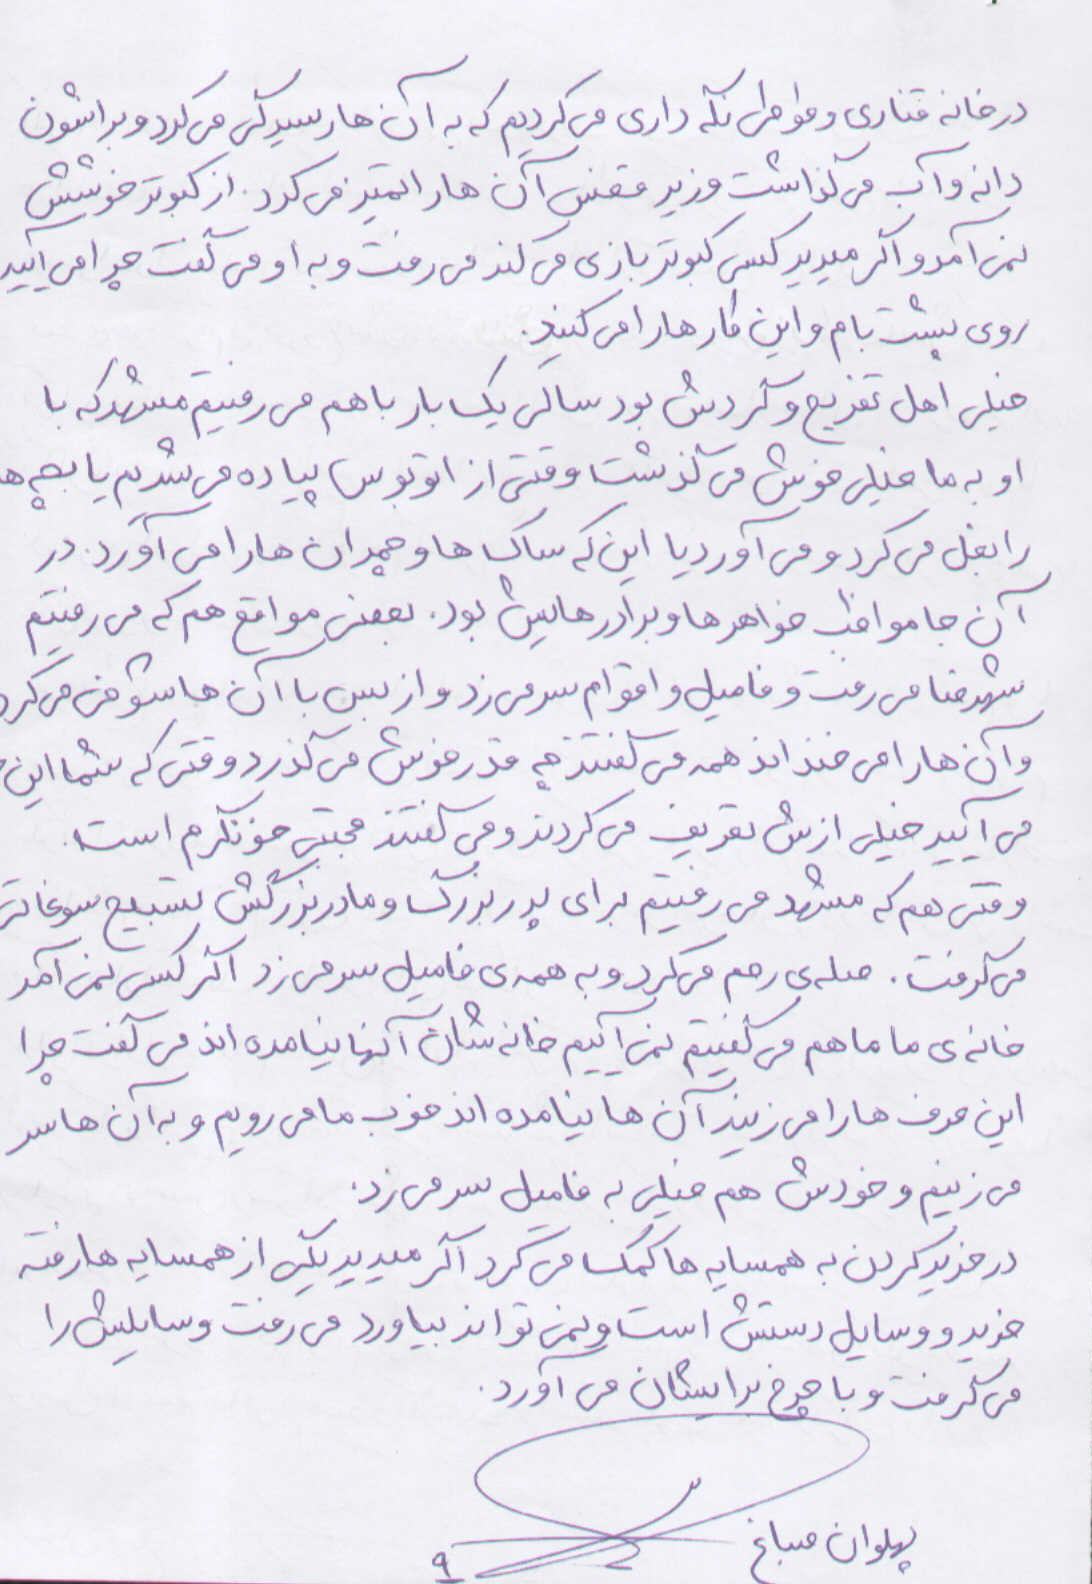 در خانه قناری و طوطی نگه داری می کردیم که به آن ها رسیدگی می کرد و براشون
دانه و آب می گذاشت و زیر قفس آن ها را تمیز می کرد. از کبوتر خوشش
نمی آمد و اگر میدید کسی کبوتر بازی می کند می رفت و به او می گفت چرا می آیید
روی پشت بام و این کار ها را می کنید.
خیلی اهل تفریح و گردش بود سالی یک بار با هم می رفتیم مشهد که با
او به ما خیلی خوش می گذشت وقتی از اتوبوس پیاده می شدیم یا بچه ها
را بغل می کرد و می آورد یا این که ساک ها و چمدان ها را می آورد. در
آن جا مواظب خواهر ها و برادر هایش بود. بعضی مواقع هم که می رفتیم
شهرضا می رفت و فامیل و اقوام سر می زد و از بس با آن ها شوخی می کرد
و آن ها را می خنداند همه می گفتند چه قدر خوش می گذرد وقتی که شما این
می آیید خیلی ازش تعریف می کردند و می گفتند مجتبی خونگرم است.
وقتی هم که مشهد می رفتیم برای پدر بزرگ و مادر بزرگش تسبیح سوغاتی
می گرفت. صله ی رحم می کرد و به همه ی فامیل سر می زد اگر کسی نمی آمد
خانه ی ما ما هم می گفتیم نمی آییم خانه شان آنها نیامده اند می گفت چرا
این حرف ها را می زنید آن ها نیامده اند خوب ما می رویم و به آن ها سر
می زنیم و خودش هم خیلی به فامیل سر می زد.
در خرید کردن به همسایه ها کمک می کرد اگر میدید یکی از همسایه ها رفته
خرید و وسایل دستش است و نمی تواند بیاورد می رفت وسایلش را
می گرفت و با چرخ برایشان می آورد.
پهلوان صباغ
۹